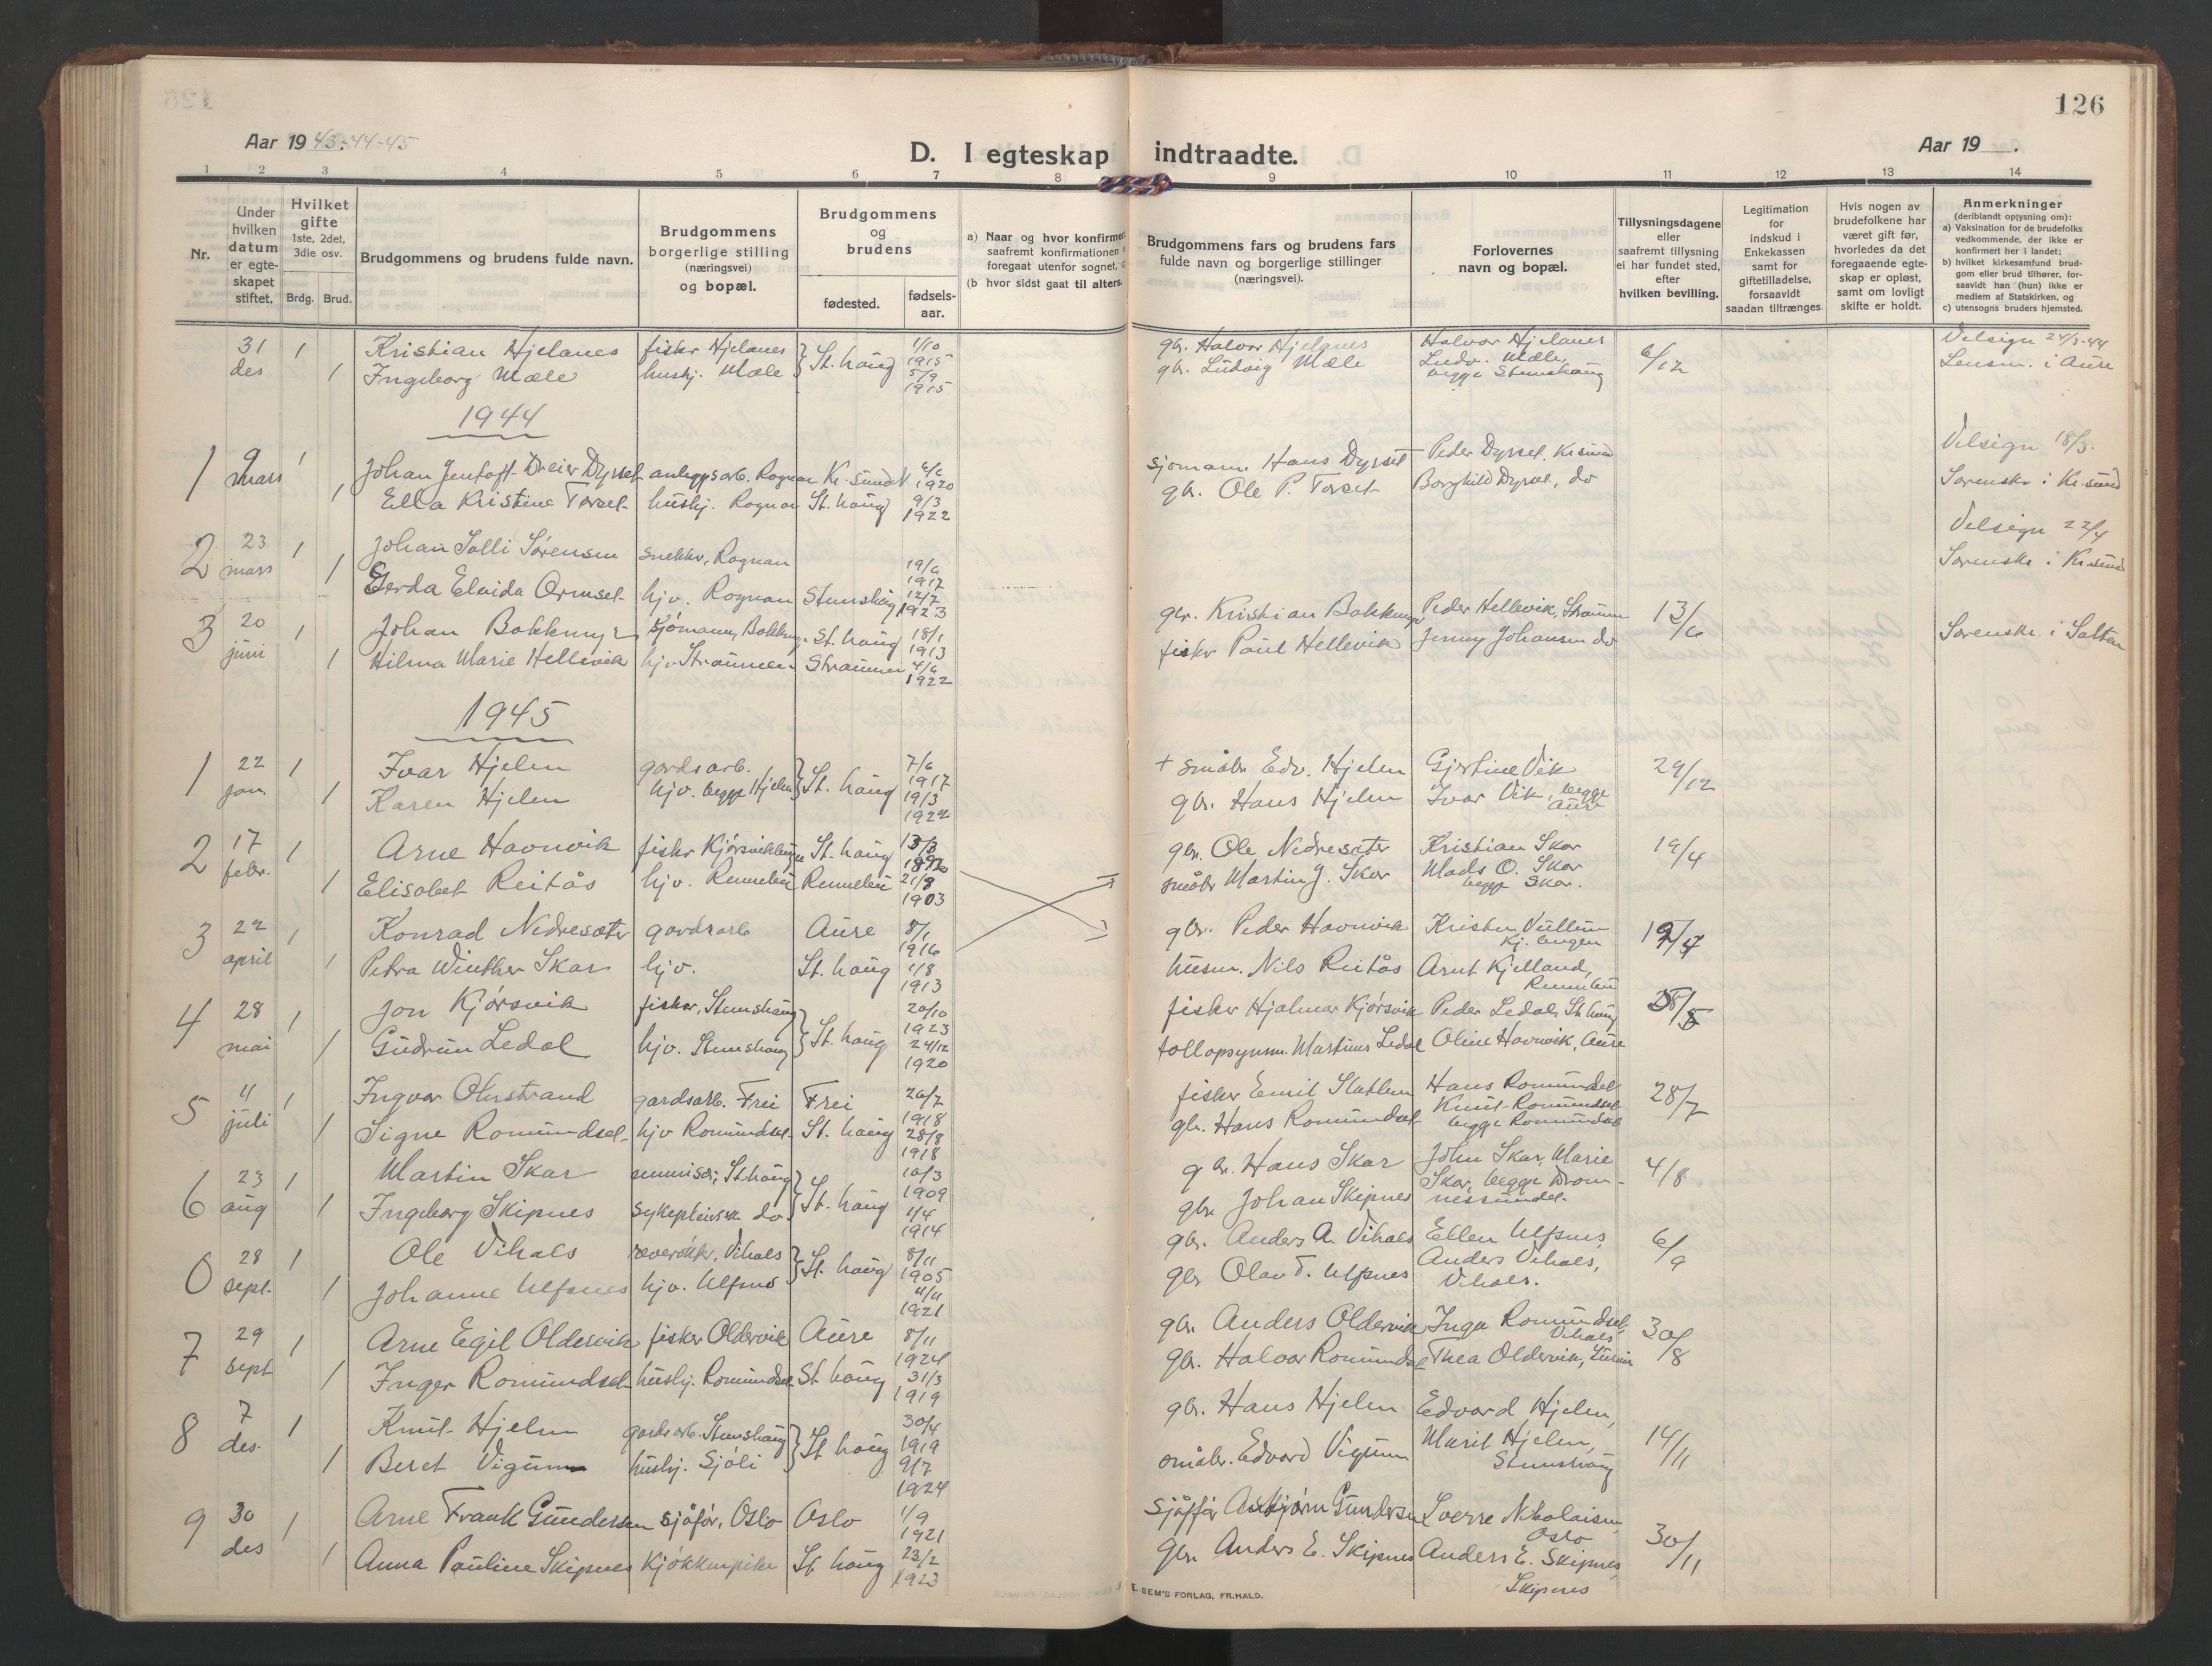 126
Aar 1943-44-45
D. I egteskap indtraadte.
Aar 19 .
1 2 3 4 5 6 7 8 9 10 11 12 13 14
Nr.
Under hvilken datum er egteskapet stiftet.
Hvilket gifte 1ste, 2det, 3die osv.
Brdg. Brud.
Brudgommens og brudens fulde navn.
Brudgommens borgerlige stilling (næringsvei) og bopæl.
Brudgommens og brudens
fødested. fødsels-aar.
a) Naar og hvor konfirmert
saafremt konfirmationen
foregaat utenfor sognet,
(b hvor sidst gaat til alters.
Brudgommens fars og brudens fars
fulde navn og borgerlige stillinger
(næringsvei).
Forlovernes
navn og bopæl.
Tillysningsdagene
eller
saafremt tillysning
ei har fundet sted,
efter
hvilken bevilling.
Legitimation
for
indskud i
Enkekassen
samt for
giftetilladelse,
forsaavidt
saadan tiltrænges.
Hvis nogen av
brudefolkene har
været gift før,
hvorledes da det
foregaaende egte-
skap er opløst,
samt om lovligt
skifte er holdt.
Anmerkninger
(deriblandt oplysning om):
a) Vaksination for de brudefolks
vedkommende, der ikke er
konfirmert her i landet;
b) hvilket kirkesamfund brud-
gom eller brud tilhører, for-
saavidt han (hun) ikke er
medlem af Statskirken, og
c) utensogns bruders hjemsted.
31 des 1 Kristian Hjelanes fisker Hjelanes } St. haug 1/10 1915 gbr. Halvor Hjelanes Halvor Hjelanes 6/12 Velsign 24/3-44
1 Ingeborg Mæle hushj. Mæle 5/9 1915 gbr. Ludvig Mæle Ludv. Mæle, begge Stemshaug Lensm. i Aure
1944
1 9 mars 1 Johan Jentoft Dreier Dyrset anleggsarb. Rognan Kr.sund N 6/6 1920 sjømann Hans Dyrset Peder Dyrset, Kr.sund Velsign 18/3.
1 Ella Kristine Torset hushj. Rognan St. haug 9/3 1922 gbr. Ole P. Torset Borghild Dyrset, do Sorenskr i Kr.sund
2 23 mars 1 Johan Solli Sørensen snekker, Rognan 19/6 1917 Velsign 22/4
1 Gerda Elvida Ormset hjv. Rognan Stemshaug 12/7 1923 Sorenskr i Kr.sund
3 20 juni 1 Johan Bakkmyr sjømann, Bakkmyr St. haug 18/1 1913 gbr. Kristian Bakkmyr Peder Hellevik, Straumen 13/6
1 Hilma Marie Hellevik hjv Straumen Straumen 4/6 1922 fisker Paul Hellevik Jenny Johansen do Sorenskr. i Salten
1945
1 22 jan. 1 Ivar Hjelen gardsarb. } St. haug 7/6 1917 + småbr Edv. Hjelen Gjertine Vik 29/12
1 Karen Hjelen hjv. begge Hjelen 19/3 1922 gbr. Hans Hjelen Ivar Vik, begge Aure
2 17 febr. 1 Arne Havnvik fisker Kjørsvikbugen St. haug gbr. Ole Nedresæter Kristian Skar 19/4
1 Elisabet Reitås hjv. Rennebu Rennebu 21/8 1903 småbr Martin J. Skar Mads O. Skar begge Skar.
3 22 april 1 Konrad Nedresæter gardsarb Aure 8/1 1916 gbr. Peder Havnvik Kristen Vullum Kj. bugen
1 Petra Winther Skar hjv. St. haug 1/8 1913 husm. Nils Reitås Arnt Kjelland, Rennebu
4 28 mai 1 Jon Kjørsvik fisker, Stemshaug } St. haug 20/10 1923 fisker Hjalmar Kjørsvik Peder Ledal, St. haug
1 Gudrun Ledal hjv. Stemshaug 24/12 1920 tollopsynsm. Martinus Ledal Oline Havnvik, Aure
5 11 juli 1 Ingvar Ohrstrand gardsarb. Frei Frei 26/7 1918 fisker Emil Slatlem Hans Romundset 28/7
1 Signe Romundset hjv Romundset St. haug 28/8 1918 gbr. Hans Romundset Knut Romundset begge Romundset
6 23 aug 1 Martin Skar St.haug } St. haug 10/3 1909 gbr. Hans Skar John Skar, Marie 4/8
1 Ingeborg Skipnes sykepleierske do. 1/4 1914 gbr. Johan Skipnes Skar, begge Dromnessundet.
0 28 sept. 1 Ole Vihals reverøkter, Vihals } St. haug 8/11 1905 gbr. Anders A. Vihals Ellen Ulfsnes, 6/9
1 Johanne Ulfsnes hjv. Ulfsnes 11/11 1921 gbr Olav T. Ulfsnes Anders Vihals, Vihals.
7 29 sept 1 Arne Egil Oldervik fisker Oldervik Aure 8/11 1924 gbr. Anders Oldervik Inga Romundset, Vihals 30/8
1 Inger Romundset hushj. Romundset St. haug 31/3 1919 gbr. Halvor Romundset Thea Oldervik,
8 7 des. 1 Knut Hjelen gardsarb. Stemshaug } St haug 30/4 1919 gbr. Hans Hjelen Edvard Hjelen, 14/11
1 Beret Vigum hushj. Sjøli 9/7 1924 småbr. Edvard Vigum Marit Hjelen, Stemshaug
9 30 des 1 Arne Frank Gundersen sjåfør, Oslo Oslo 1/9 1921 sjåffør Asbjørn Gundersen Sverre Nikolaisen, Oslo 30/11
1 Anna Pauline Skipnes Kjøkkenpike St. haug 23/2 1923 gbr. Anders E. Skipnes Anders E. Skipnes, Skipnes
E. SEM'S FORLAG, FR.HALD.